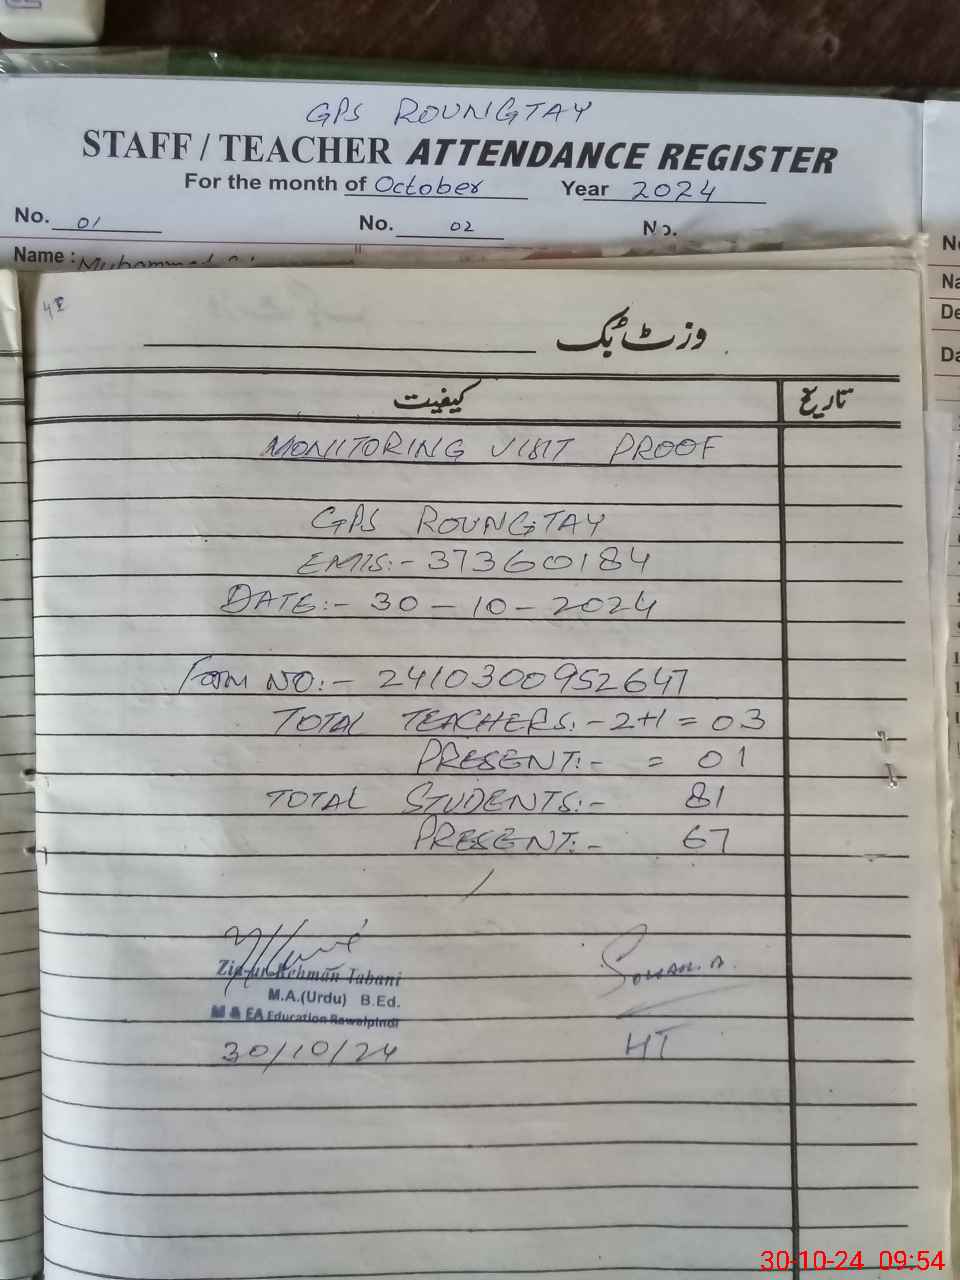 GPS ROUNGTAY
STAFF / TEACHER ATTENDANCE REGISTER
For the month of October Year 2024
No. 01 No. 02 No.
Name : Muhammad
وزٹ بک
کیفیت تاریخ
MONITORING VISIT PROOF
GPS ROUNGTAY
EMIS:- 37360184
DATE:- 30-10-2024
Form NO:- 2410300952647
TOTAL TEACHERS:- 2+1 = 03
PRESENT:- = 01
TOTAL STUDENTS:- 81
PRESENT:- 67
Zia-ur-Rehman Tabani
M.A.(Urdu) B.Ed.
M & EA Education Rawalpindi
30/10/24
HT
30-10-24 09:54